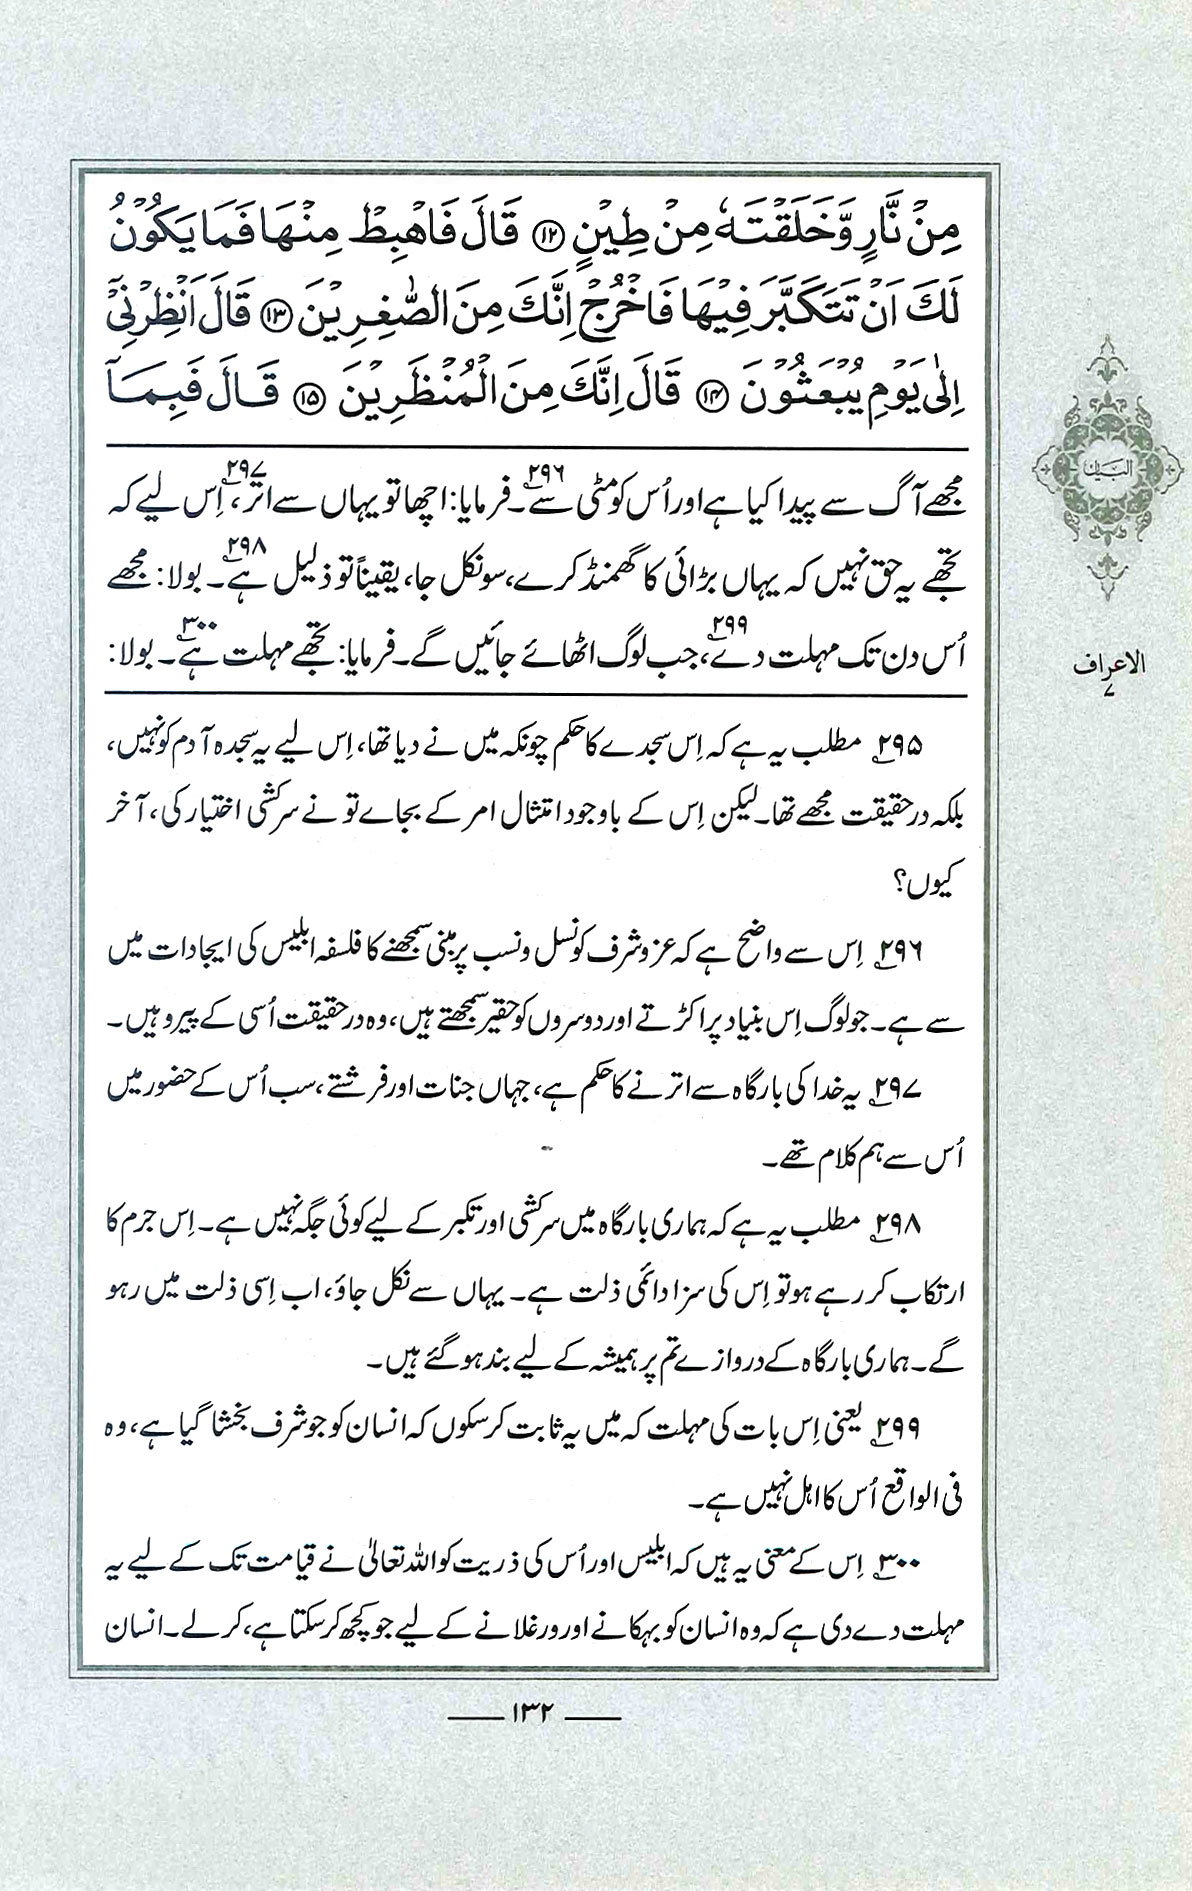 مِنْ نَّارٍ وَّخَلَقْتَهٗ مِنْ طِيْنٍ ﴿۱۲﴾ قَالَ فَاهْبِطْ مِنْهَا فَمَا يَكُوْنُ
لَكَ اَنْ تَتَكَبَّرَ فِيْهَا فَاخْرُجْ اِنَّكَ مِنَ الصّٰغِرِيْنَ ﴿۱۳﴾ قَالَ اَنْظِرْنِيْٓ
اِلٰى يَوْمِ يُبْعَثُوْنَ ﴿۱۴﴾ قَالَ اِنَّكَ مِنَ الْمُنْظَرِيْنَ ﴿۱۵﴾ قَالَ فَبِمَآ
مجھے آگ سے پیدا کیا ہے اور اُس کو مٹی سے۔۲۹۶ فرمایا: اچھا تو یہاں سے اتر،۲۹۷ اِس لیے کہ
تجھے یہ حق نہیں کہ یہاں بڑائی کا گھمنڈ کرے، سو نکل جا، یقیناً تو ذلیل ہے۔۲۹۸ بولا: مجھے
اُس دن تک مہلت دے،۲۹۹ جب لوگ اٹھائے جائیں گے۔ فرمایا: تجھے مہلت ہے۔۳۰۰ بولا:
البیان
الاعراف
۷
۲۹۵ مطلب یہ ہے کہ اِس سجدے کا حکم چونکہ میں نے دیا تھا، اِس لیے یہ سجدہ آدم کو نہیں،
بلکہ درحقیقت مجھے تھا۔ لیکن اِس کے باوجود امتثال امر کے بجاے تو نے سرکشی اختیار کی، آخر
کیوں؟
۲۹۶ اِس سے واضح ہے کہ عز و شرف کو نسل و نسب پر مبنی سمجھنے کا فلسفہ ابلیس کی ایجادات میں
سے ہے۔ جو لوگ اِس بنیاد پر اکڑتے اور دوسروں کو حقیر سمجھتے ہیں، وہ درحقیقت اُسی کے پیرو ہیں۔
۲۹۷ یہ خدا کی بارگاہ سے اترنے کا حکم ہے، جہاں جنات اور فرشتے، سب اُس کے حضور میں
اُس سے ہم کلام تھے۔
۲۹۸ مطلب یہ ہے کہ ہماری بارگاہ میں سرکشی اور تکبر کے لیے کوئی جگہ نہیں ہے۔ اِس جرم کا
ارتکاب کر رہے ہو تو اِس کی سزا دائمی ذلت ہے۔ یہاں سے نکل جاؤ، اب اِسی ذلت میں رہو
گے۔ ہماری بارگاہ کے دروازے تم پر ہمیشہ کے لیے بند ہو گئے ہیں۔
۲۹۹ یعنی اِس بات کی مہلت کہ میں یہ ثابت کر سکوں کہ انسان کو جو شرف بخشا گیا ہے، وہ
فی الواقع اُس کا اہل نہیں ہے۔
۳۰۰ اِس کے معنی یہ ہیں کہ ابلیس اور اُس کی ذریت کو اللہ تعالیٰ نے قیامت تک کے لیے یہ
مہلت دے دی ہے کہ وہ انسان کو بہکانے اور ورغلانے کے لیے جو کچھ کر سکتا ہے، کر لے۔ انسان
۱۳۲